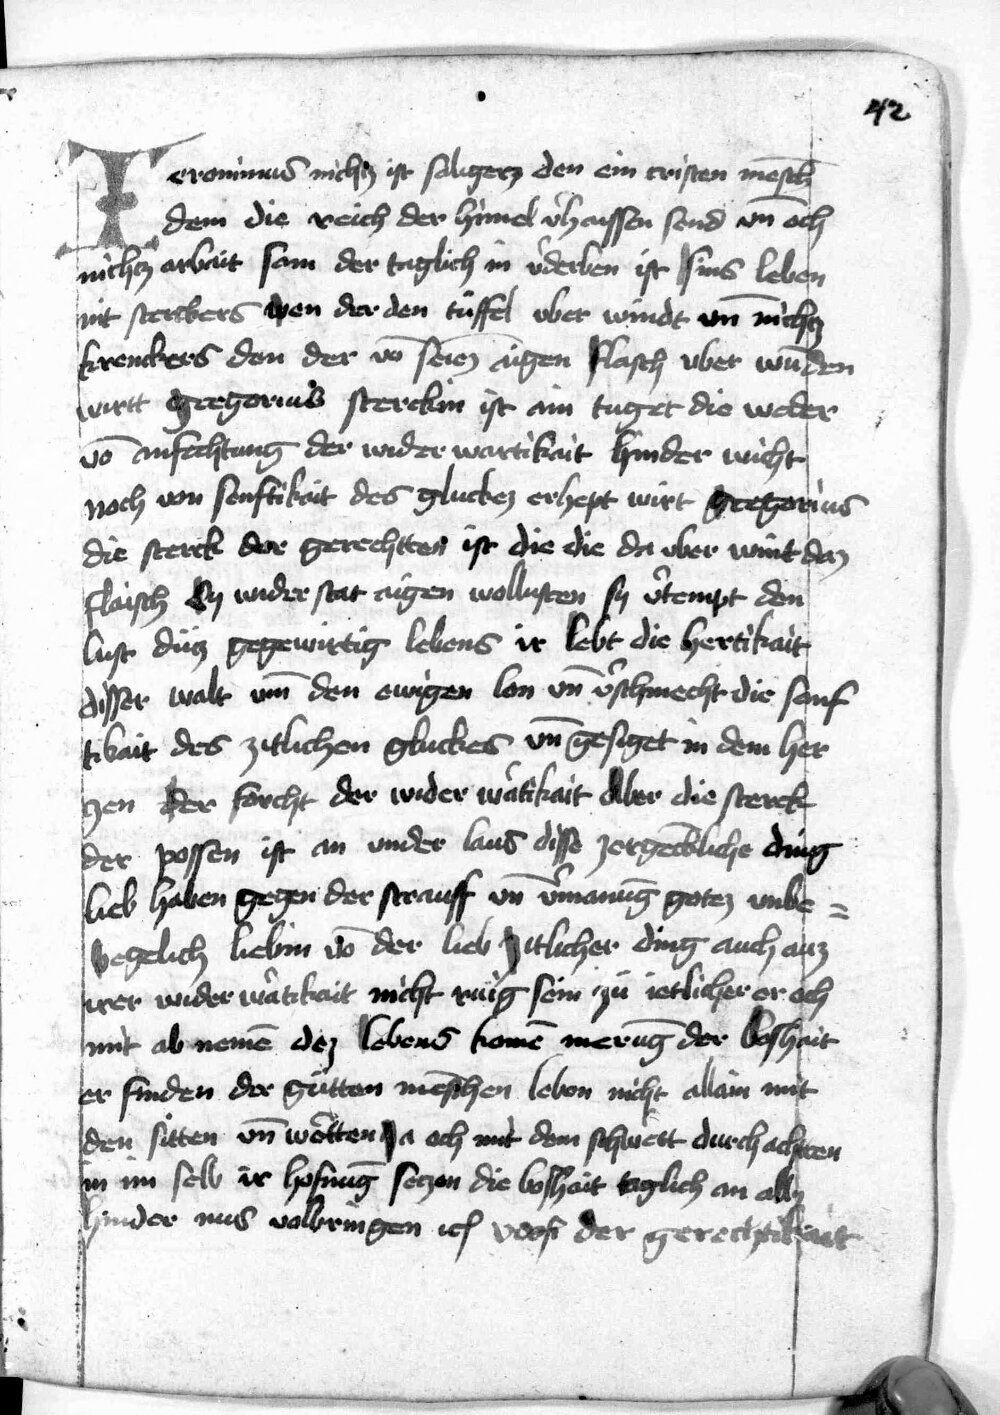 42
Ieronimus nichtz ist saligerz den ein cristen mēsch
dem die reich der himel v̾haissen send vn̄ och
nichtz arbait sam der taglich in v̾derben ist sins leben
nit sterckers wen der den tüffel vber windt vn̄ nichtz
krenckers den der vō seinē aigen flasch vber wūden
wirtt gregorius sterckin ist ain tuget die weder
vō anfechtung der wider wartikait hinder wicht
noch von senftikait des gluckez erhept wirt gregorius
die sterck der gerechtten ist die die da vber wint daz
flaisch sy wider stat aigen wollusten sy v̾tempt den
lust ditz gegewirtig lebens ir lebt die hertikait
disser walt vm̄ den ewigen lon vn̄ v̾schmecht die senf
tikait des zitlichen gluckes vn̄ gesiget in dem her
zen der forcht der wider wa̾tikait Aber die sterck
der possen ist an vnder laus disse zergēckliche ding
lieb haben gegen der strauff vn̄ v̾manūg gotez vnbe =
wegelich liebin vō der lieb zitlicher ding auch auz
irer wider wa̾tikait nicht ruig sein zü ietlicher er och
mit ab nemē dez lebens komē merūg der boshait
er finden der gütten mēschen leben nicht allain mit
den sitten vn̄ wo̾tten ja och mit dem schwert durch achtten
in im selb ir hofnūg seczen die boshait taglich an allz
hinder nus volbringen ich der gerechtikait